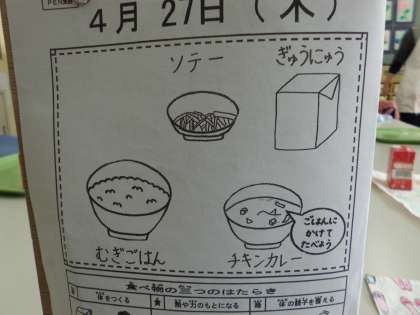 4月27日(木)
ソテー
ぎゅうにゅう
むぎごはん
チキンカレー
ごはんに
かけて
たべよう
食べ物の三つのはたらき
体をつくる
熱や力のもとになる
体の調子を整える